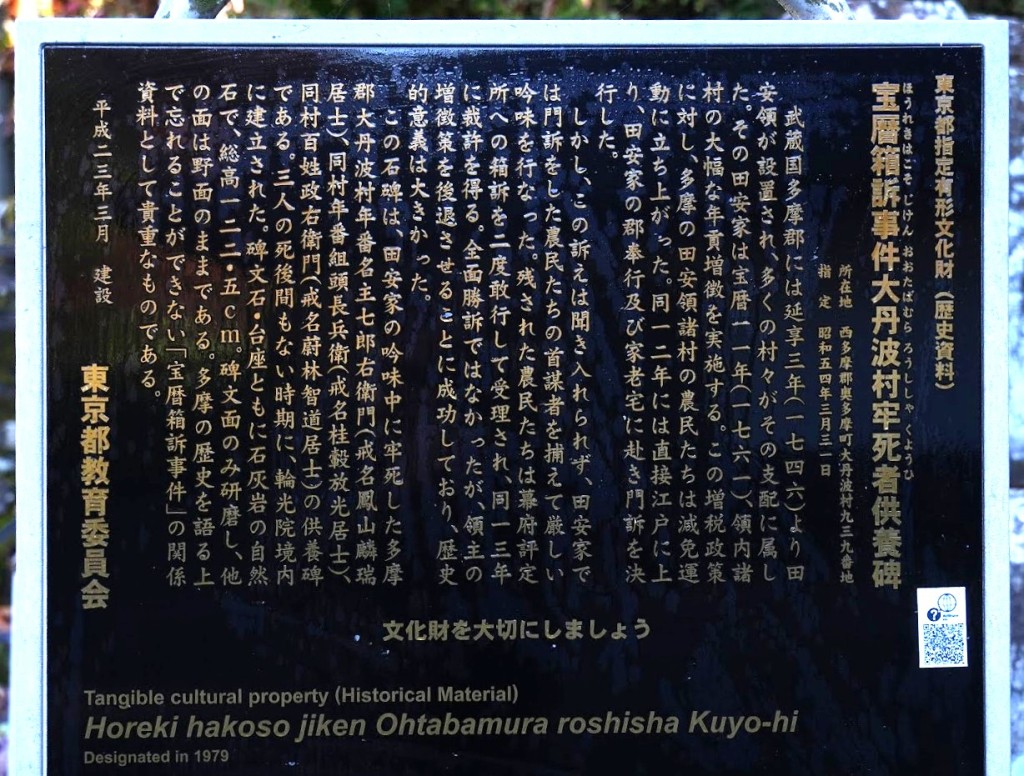 東京都指定有形文化財(歴史資料)
ほうれきはこそじけん おおたばむら ろうししゃ くようひ
宝暦箱訴事件大丹波村牢死者供養碑
所在地 西多摩郡奥多摩町大丹波村九三九番地
指定 昭和五四年三月三一日
武蔵国多摩郡には延享三年(一七四六)より田
安領が設置され、多くの村々がその支配に属し
た。その田安家は宝暦一一年(一七六一)、領内諸
村の大幅な年貢増徴を実施する。この増税政策
に対し、多摩の田安領諸村の農民たちは減免運
動に立ち上がった。同一二年には直接江戸に上
り、田安家の郡奉行及び家老宅に赴き門訴を決
行した。
しかし、この訴えは聞き入れられず、田安家で
は門訴をした農民たちの首謀者を捕えて厳しい
吟味を行なった。残された農民たちは幕府評定
所への箱訴を二度敢行して受理され、同一三年
に裁許を得る。全面勝訴ではなかったが、領主の
増徴策を後退させることに成功しており、歴史
的意義は大きかった。
この石碑は、田安家の吟味中に牢死した多摩
郡大丹波村年番名主七郎右衛門(戒名鳳山麟瑞
居士)、同村年番組頭長兵衛(戒名桂轂放光居士)、
同村百姓政右衛門(戒名蔚林智道居士)の供養碑
である。三人の死後間もない時期に、輪光院境内
に建立された。碑文石・台座ともに石灰岩の自然
石で、総高一二二・五cm。碑文面のみ研磨し、他
の面は野面のままである。多摩の歴史を語る上
で忘れることができない「宝暦箱訴事件」の関係
資料として貴重なものである。
平成二三年三月 建設
東京都教育委員会
文化財を大切にしましょう
Tangible cultural property (Historical Material)
Horeki hakoso jiken Ohtabamura roshisha Kuyo-hi
Designated in 1979